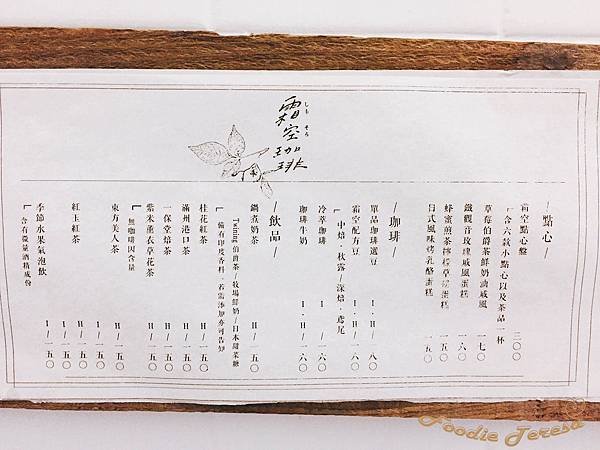 霜空珈琲
しも そら
—點心—
霜空點心盤 三〇〇
「含六款小點心以及茶品一杯
草莓伯爵茶鮮奶油戚風 一七〇
鐵觀音玫瑰戚風蛋糕 一六〇
蜂蜜煎茶檸檬草磅蛋糕 一五〇
日式風味烤乳酪蛋糕 一五〇
—珈琲—
單品珈琲選豆 I・H/一八〇
霜空配方豆 I・H/一六〇
「中焙・秋露/深焙・鳶尾
冷萃珈琲 I/一六〇
珈琲牛奶 I・H/一六〇
—飲品—
鍋煮奶茶 H/一五〇
Twining伯爵茶/牧場鮮奶/日本甜菜糖
「備有印度香料,若需添加亦可告知
桂花紅茶 H/一五〇
滿州港口茶 H/一五〇
一保堂焙茶 H/一五〇
紫米薰衣草花茶 H/一五〇
「無咖啡因含量
東方美人茶 I/一五〇
紅玉紅茶 I/一五〇
季節水果氣泡飲 I/一五〇
「含有微量酒精成份
Foodie Teresa